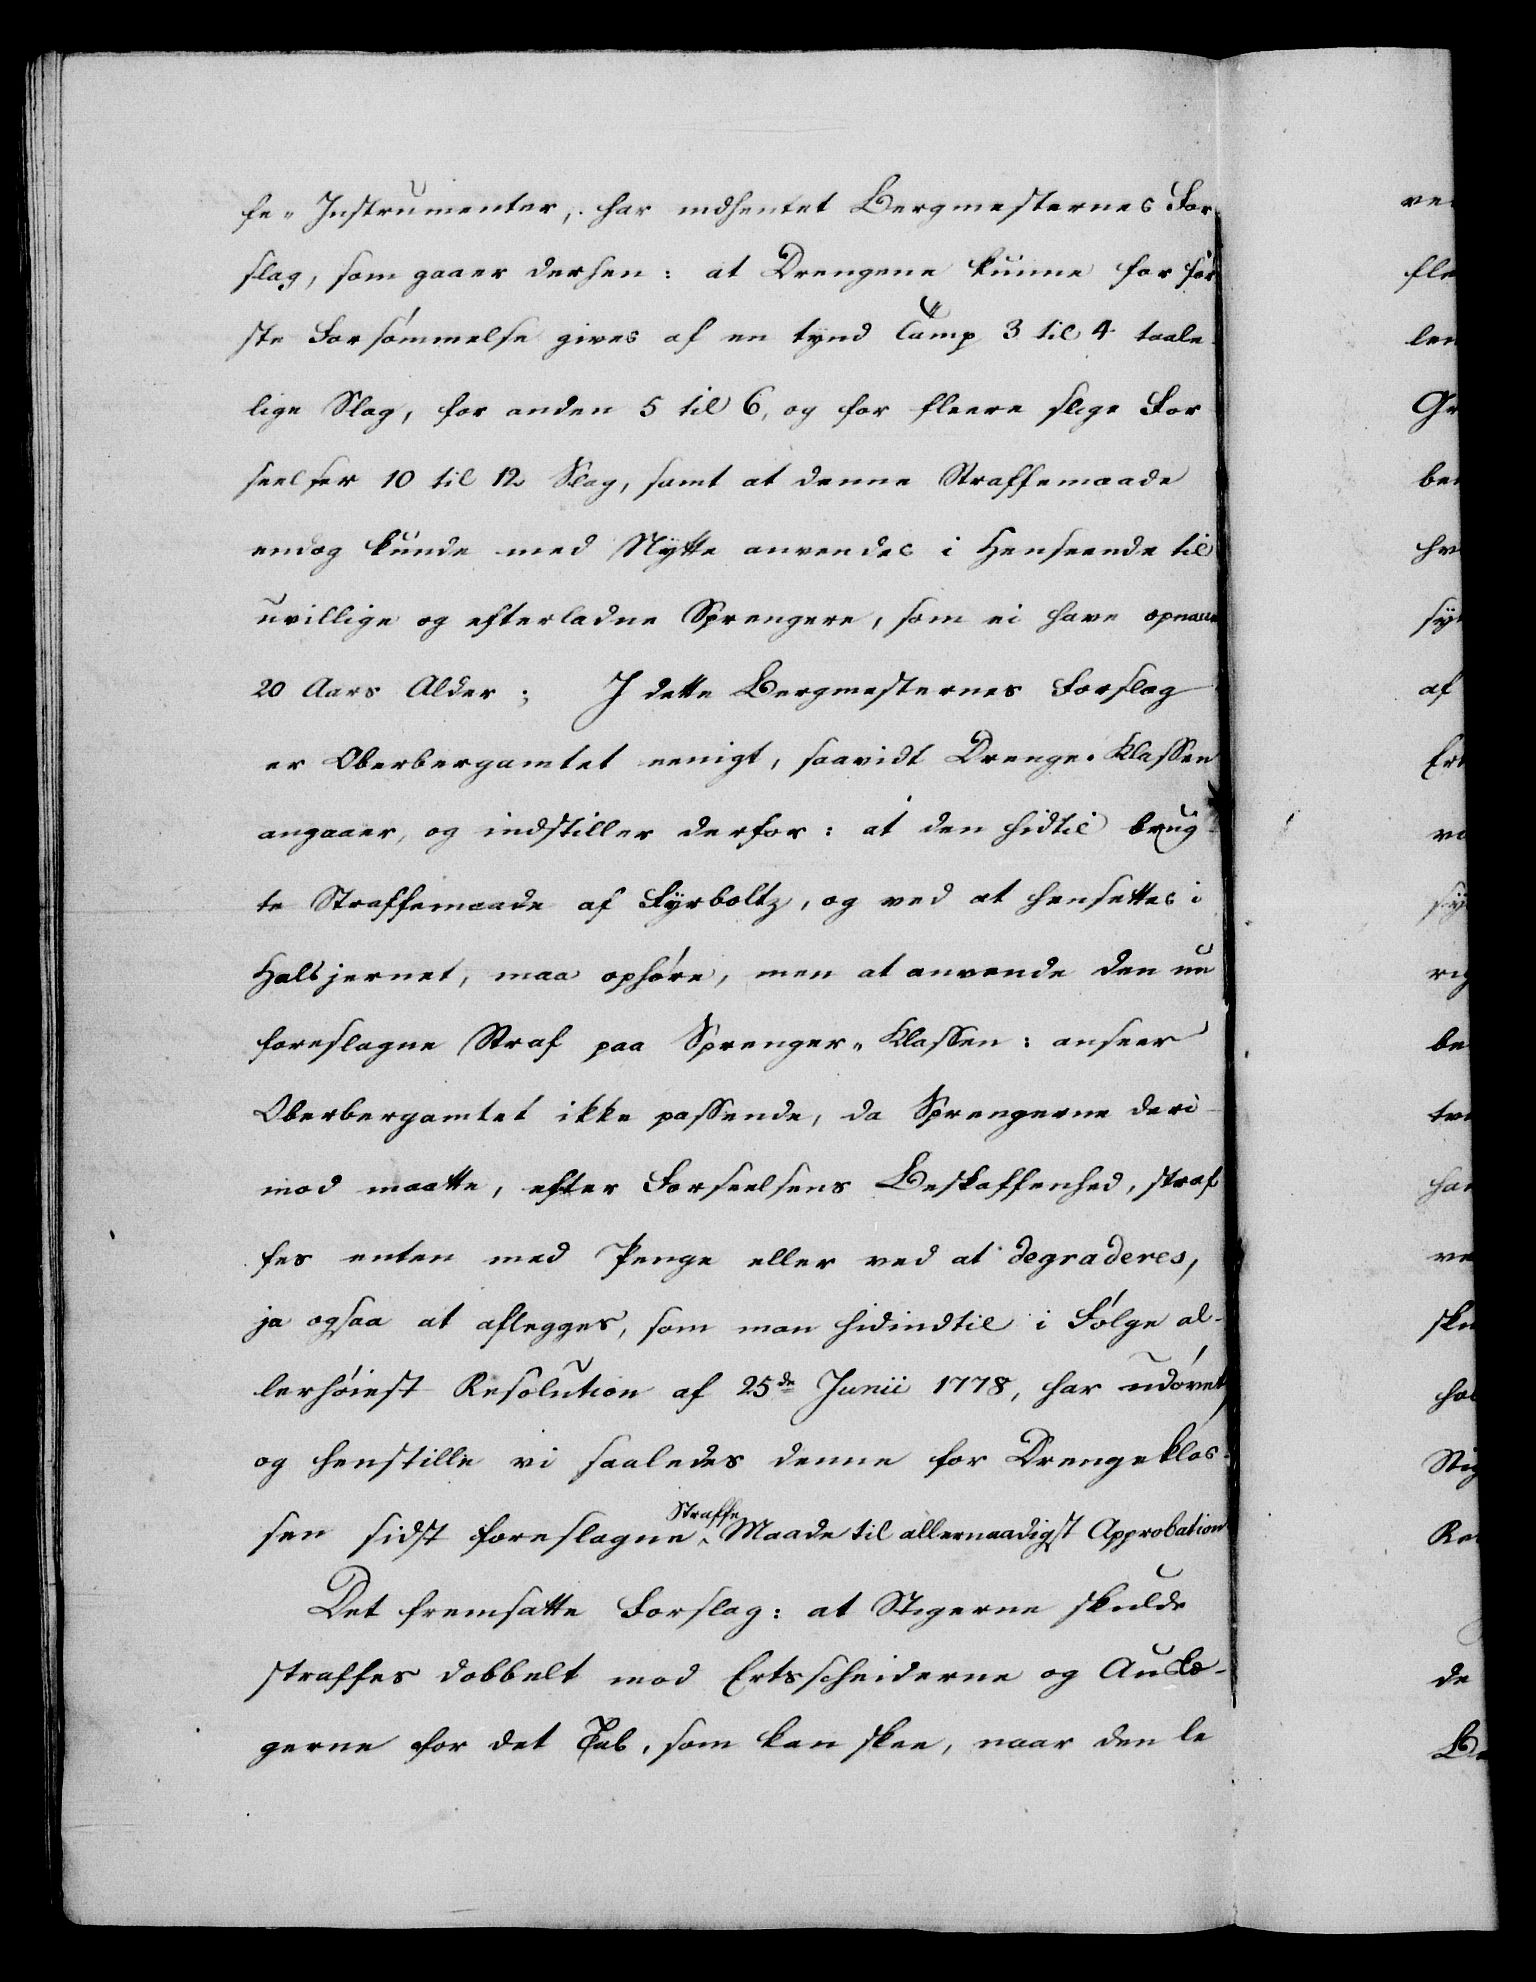 fe-Instrumenter, har indhentet Bergmesternes For
slag, som gaaer derhen: at Drengene kunne for før
ste Forsømmelse gives af en tynd Tamp 3 til 4 taale
lige Slag, for anden 5 til 6, og for fleere slige For
seelser 10 til 12 Slag, samt at denne Straffemaade
endog kunde med Nytte anvendes i Henseende til
uvillige og efterladne Sprengere, som ei have opnaaet
20 Aars Alder; I dette Bergmesternes Forslag
er Oberbergamtet eenigt, saavidt Drenge-Klassen
angaaer, og indstiller derfor: at den hidtil brug
te Straffemaade af Fyrboltz, og ved at hensettes i
Halsjernet, maa ophøre, men at anvende den nu
foreslagne Straf paa Sprenger-Klassen: anseer
Oberbergamtet ikke passende, da Sprengerne deri-
mod maatte, efter Forseelsens Beskaffenhed, straf
fes enten med Penge eller ved at degraderes,
ja ogsaa at aflegges, som man hidindtil i Følge al-
lerhøiest Resolution af 25de Junii 1778, har udøvet,
og henstille vi saaledes denne for Drengeklas-
sen sidst foreslagne Straffe Maade til allernaadigst Approbation
Det fremsatte Forslag: at Stigerne skulde
straffes dobbelt mod Ertsscheiderne og Ausle-
gerne for det Tab, som kan skee, naar den le